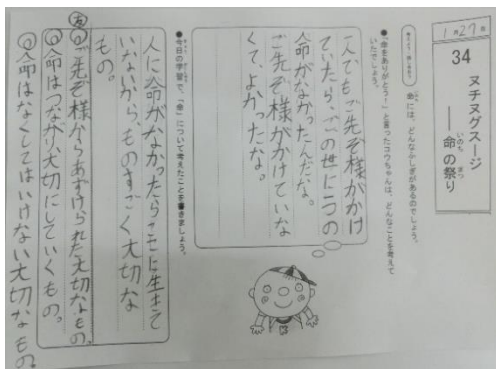 1月27日
34 ヌチヌグスージ
――命の祭り
いのち まつ
考えよう・話し合おう
命には、どんなふしぎがあるのでしょう。
●「命をありがとう!」と言ったコウちゃんは、どんなことを考えて
いたでしょう。
一人でもご先ぞ様がかけ
ていたら、この世に一つの
命がなかったんだな。
ご先ぞ様がかけていな
くて、よかったな。
●今日の学習で、「命」について考えたことを書きましょう。
人に命がなかったらここに生きて
いないから、ものすごく大切な
もの。
友
◎ご先ぞ様からあずけられた大切なもの。
◎命はつながり、大切にしていくもの。
◎命はなくしてはいけない大切なもの。